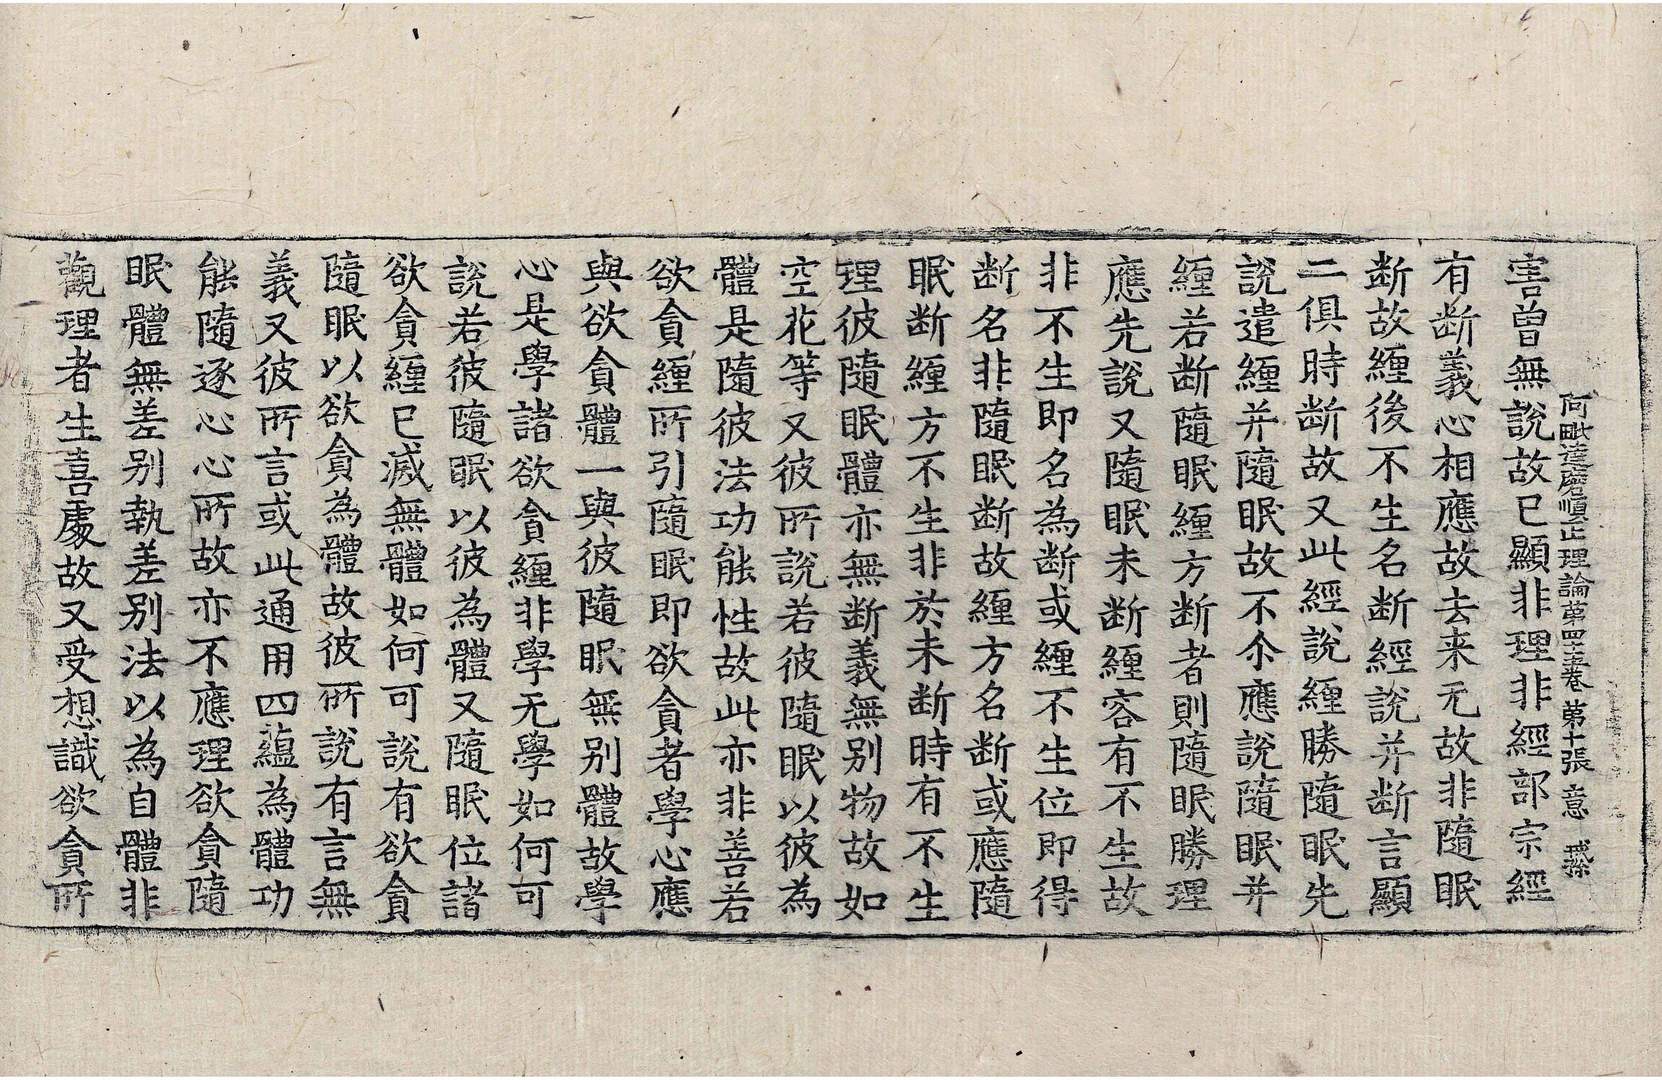 阿毗達磨順正理論第四十五卷 第十張 意
害曾無說故已顯非理非經部宗經
有断義心相應故去来无故非隨眠
断故纏後不生名断經說并断言顯
二俱時断故又此經說纏勝隨眠先
說遣纏并隨眠故不尒應說隨眠并
纏若断隨眠纏方断者則隨眠勝理
應先說又隨眠未断纏容有不生故
非不生即名為断或纏不生位即得
断名非隨眠断故纏方名断或應隨
眠断纏方不生非於未断時有不生
理彼隨眠體亦無断義無别物故如
空花等又彼所說若彼隨眠以彼為
體是隨彼法功能性故此亦非善若
欲貪纏所引隨眠即欲貪者學心應
與欲貪體一與彼隨眠無别體故學
心是學諸欲貪纏非學无學如何可
說若彼隨眠以彼為體又隨眠位諸
欲貪纏已滅無體如何可說有欲貪
隨眠以欲貪為體故彼所說有言無
義又彼所言或此通用四蘊為體功
能隨逐心心所故亦不應理欲貪隨
眠體無差别執差别法以為自體非
觀理者生喜處故又受想識欲貪所